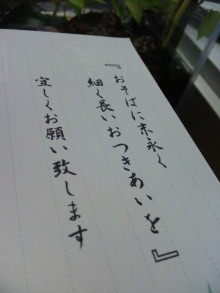 『おそばに末永く
細く長いおつきあいを』
宜しくお願い致します